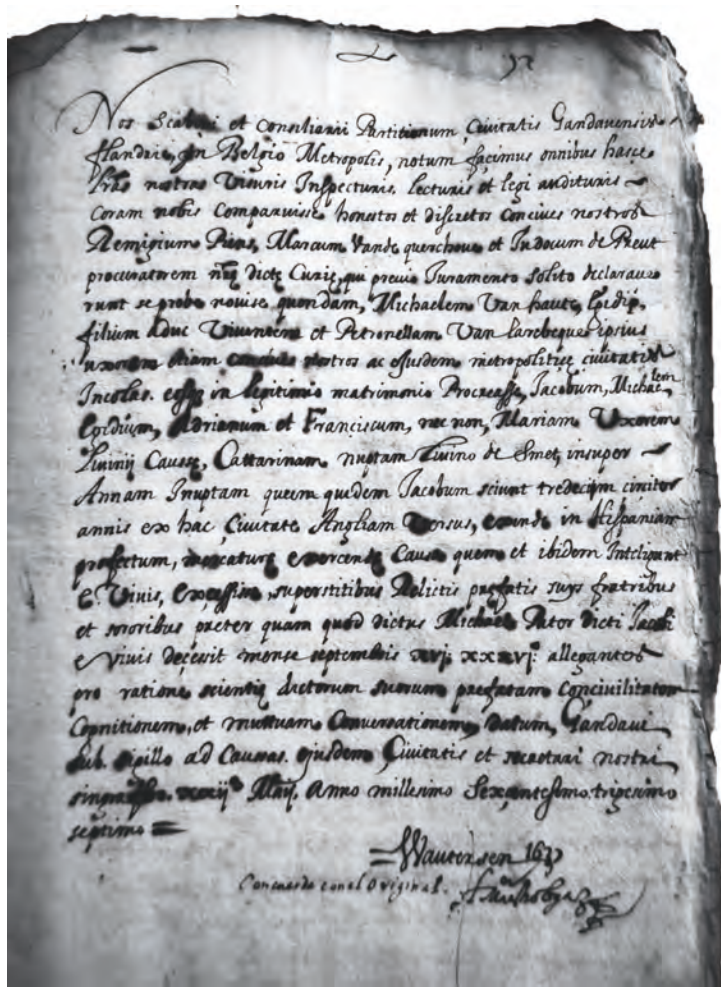 92
Nos Scabini et Consiliarii Partitionum Civitatis Gandavensis
flandrie, in Belgio Metropolis, notum facimus omnibus hasce
lras nostras Visuris Inspecturis, lecturis et legi audituris
coram nobis Comparuisse honestos et discretos concives nostros
Remigium Piens, Marcum Vande querchove et Judocum de Preut
procuratorem nre dicte Curie, qui previo Juramento solito declarave
runt se probe novisse quondam, Michaelem Van haute, Egidij
filium aduc Viventem et Petronellam Van larebeque ipsius
uxorem etiam concives nostros ac ejusdem metropolitice civitatis
Incolas. eosque in legitimio matrimonio Procreasse, Jacobum, Michaelem
Egidium, Adrianum et Franciscum, nec non, Mariam Uxorem
Livinij Causse, Cattarinam nuptam Livino de Smet, insuper
Annam Inuptam queem quidem Jacobum sciunt tredecim circiter
annis ex hac Civitate Angliam Versus, exinde in Hispaniam
profectum, mercature exercende Causa quem et ibidem Intelligunt
e Vivis, excessisse, superstitibus Relictis prefatis suys fratribus
et sororibus preter quam quod dictus Michael Pater dicti Jacobi
e vivis decessit mense septembris xvj xxxvj allegantes
pro ratione scientie dictorum suorum prefatam Concivilitatem
Cognitionem, et mutuam Conversationem, Datum, Gandavi
sub. sigillo ad Causas. ejusdem Civitatis et secretari nostri
xxij Maij. Anno millesimo Sexcentesimo. trigesimo
septimo
Concuerda con el Original.